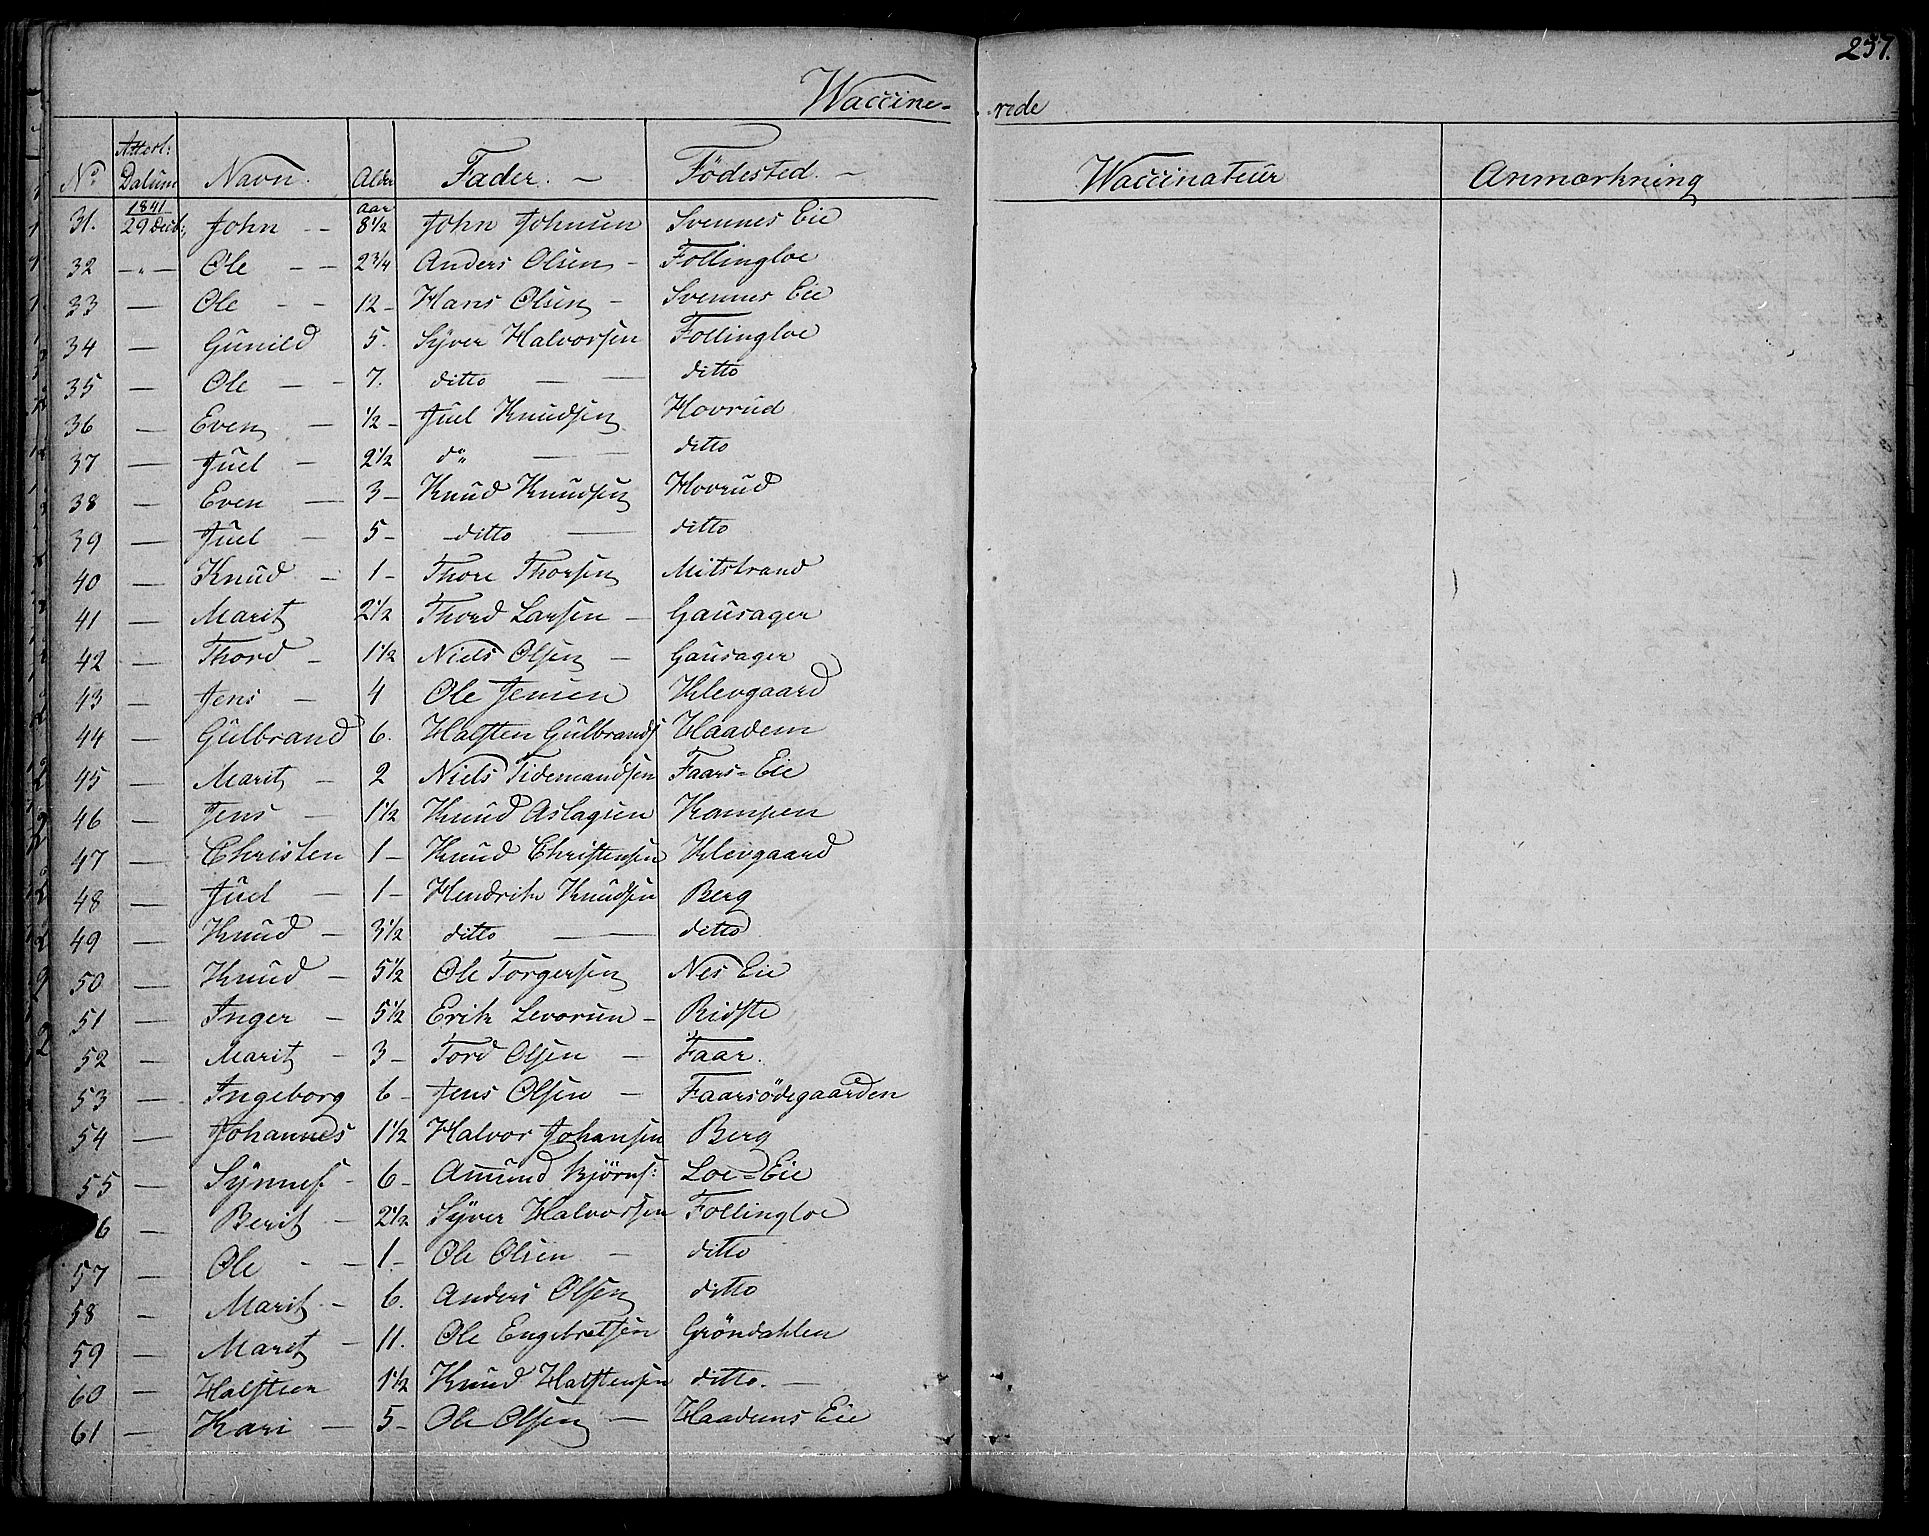 237.
Waccine- -rede
No Attest: Datum Navn. Alder Fader. — Fødested. — Waccinateur Anmærkning
1841 aar
31. 29 Decb: John -- 8 1/2 John Johnsen Svennes Eie
32 -"- Ole -- 2 3/4 Anders Olsen - Follingloe
33 — Ole -- 12 - Hans Olsen - Svennes Eie
34 — Gunild 5. Syver Halvorsen Follingloe
35 — Ole -- 7. ditto — — ditto
36 — Even — 1/2 - Juel Knudsen Hovrud
37 — Juel - 2 1/2 do — — ditto
38 — Even — 3 - Knud Knudsen Hovrud
39 — Juel - 5 - ditto — ditto
40 — Knud - 1 - Thore Thorsen Mitstrand
41 — Marit 2 1/2 Thord Larsen - Gausager
42 — Thord - 1 1/2 Niels Olsen - Gausager
43 — Jens - 4 Ole Jensen Klevgaard
44 — Gulbrand 6. Halsten Gulbrands Haadem
45 — Marit - 2 Niels Tidemandsen Faars-Eie
46 — Jens - 1 1/2 Knud Aslagsen Kampen
47 — Christen 1 - Knud Christensen Klevgaard
48 — Juel — 1 - Hendrik Knudsen Berg
49 — Knud - 3 1/2 ditto — — ditto
50 — Knud - 5 1/2 Ole Torgersen Nes Eie
51 — Inger - 5 1/2 Erik Levorsen - Ridste
52 — Marit - 3 - Tord Olsen - Faar.
53 — Ingeborg 6 - Jens Olsen - Faarsødegaarden
54 — Johannes 1 1/2 Halvor Johansen Berg
55 — Synnes - 6 - Amund Bjørns: Loe-Eie
6 — Berit - 2 1/2 Syver Halvorsen Follingloe
57 — Ole - - 1 - Ole Olsen — ditto
58 — Marit - 6. Anders Olsen ditto
59 — Marit - 11. Ole Engebretsen Grøndahlen
60 — Halsteen 1 1/2 Knud Halstensen ditto. —
61 — Kari — 5 - Ole Olsen — Haadems Eie